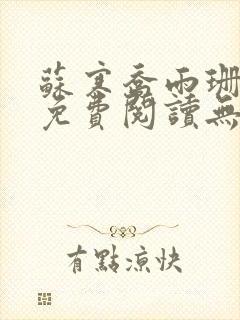 蘇寒喬雨珊
免費閱讀無
有點涼快